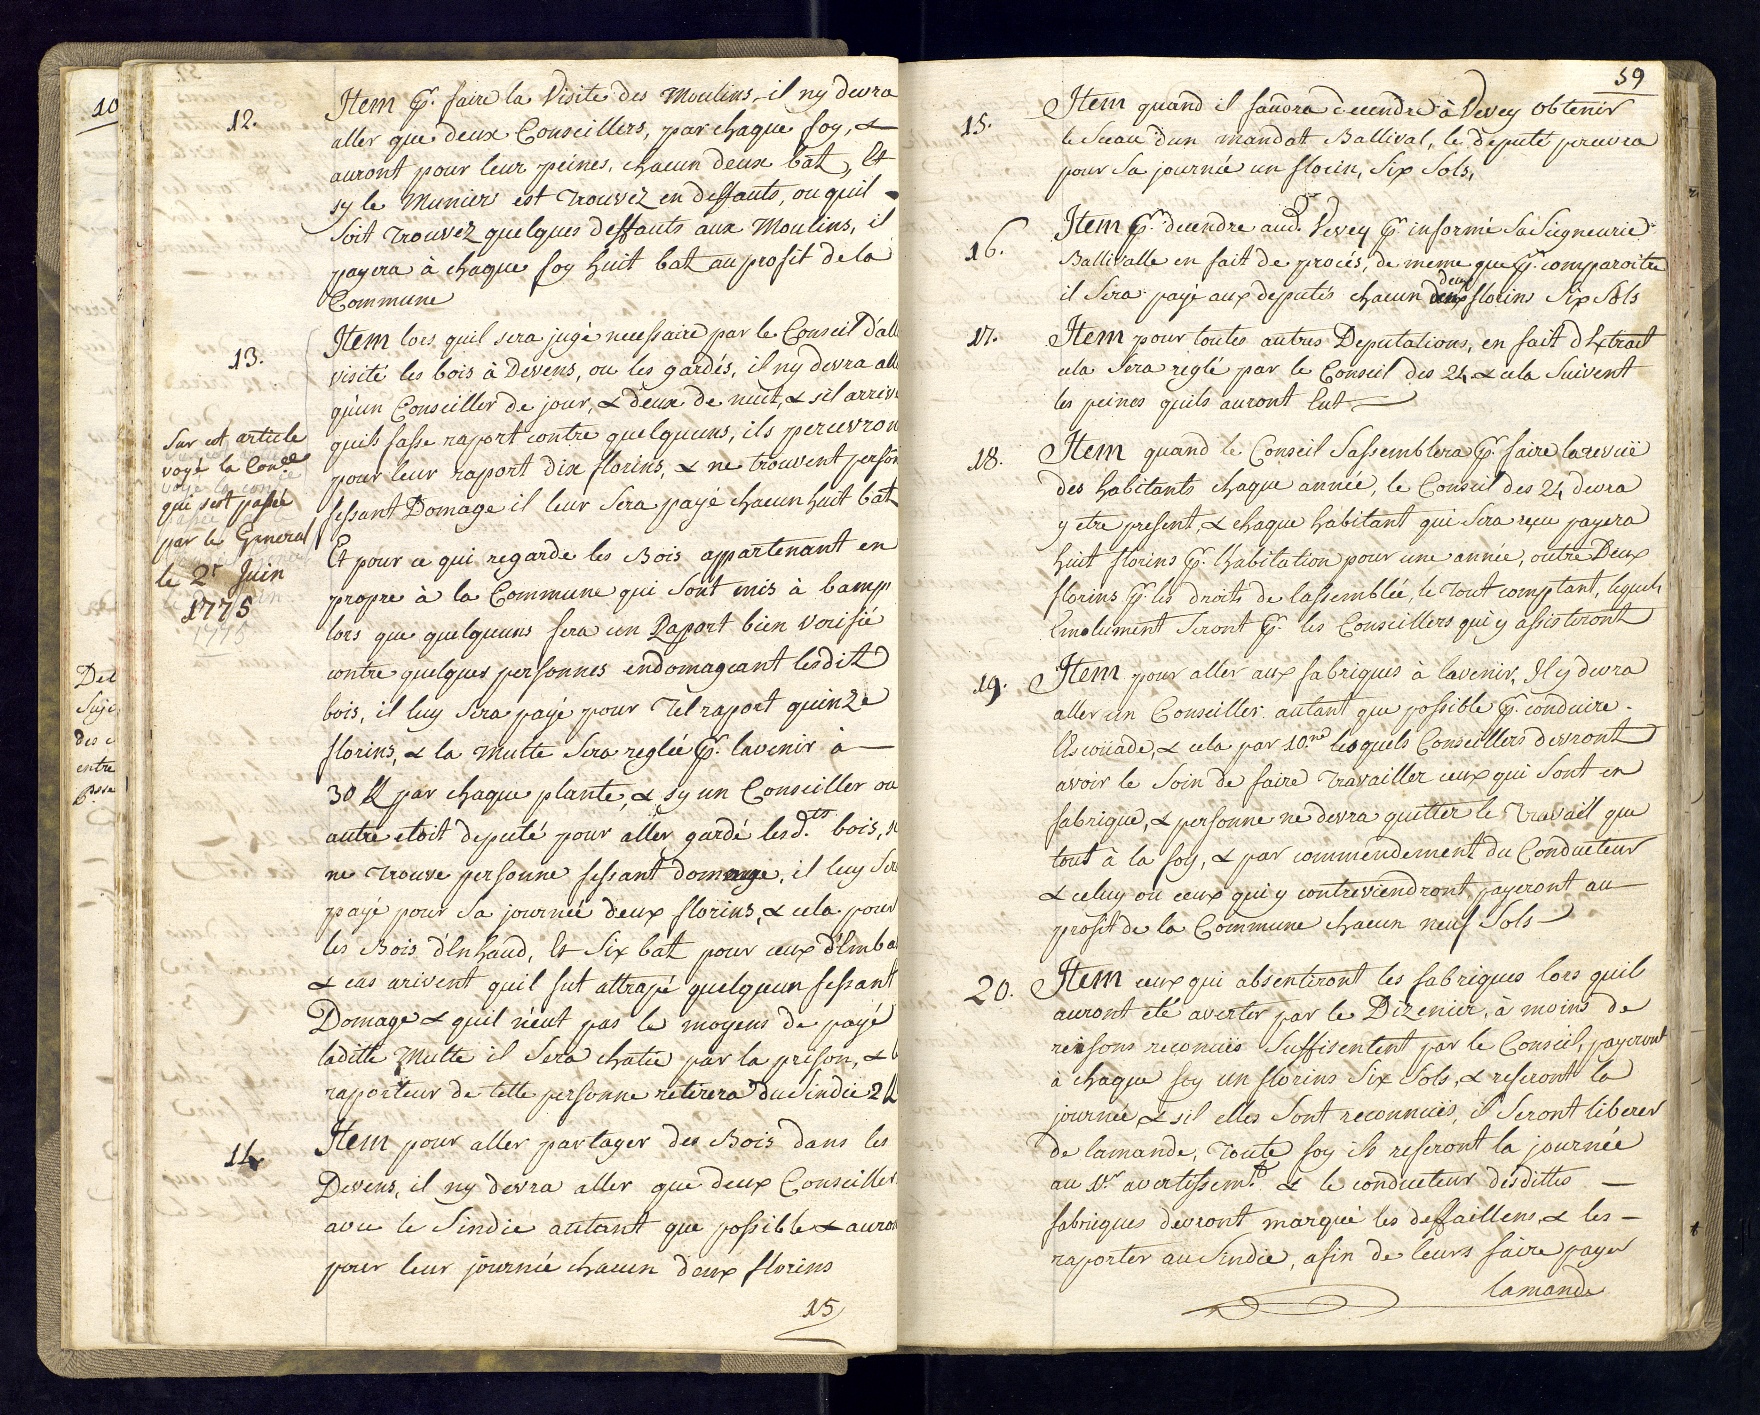 10
Del
Suje
des
entre
12.
Item pr. faire la Visite des Moulins, il ny devra
aller que deux Conseillers, par chaque foy, &
auront pour leur peines, chacun deux bat, Et
sy le Muniers est Trouvez en deffauts, ou quil
soit Trouvez quelques deffauts aux Moulins, il
payera à chaque foy huit bat au profit de la
Commune
13.
Item lors quil sera jugé necessaire par le Conseil d'all
visité les bois à Devens, ou les gardés, il ny devra all
qu'un Conseiller de jour, & deux de nuit, & sil arrive
quils fasse raport contre quelquuns, ils percevron
pour leur raport dix florins, & ne trouvent person
fessant Domage il leur sera payé chacun huit bat
Sur cet article
voyé la Con.de
qui sest passée
par le General
le 2r Juin
1775
Et pour ce qui regarde les Bois appartenant en
propre à la Commune qui sont mis à bamp
lors que quelquuns fera un Raport bien verifié
contre quelques personnes endomageant lesdit
bois, il luy sera payé pour Tel raport quinze
florins, & la Multe sera reglée pr. lavenir à
30 fl par chaque plante, & sy un Conseiller ou
autre etoit deputé pour aller gardé lesd.ts bois, s
ne Trouve personne fessant domage, il luy Sera
payé pour Sa journée deux florins, & cela pour
les Bois d'Enhaud, Et Six bat pour ceux d'Emba
& cas arivent quil fut attrapé quelquun fessant
Domage & quil n'eut pas le moyens de payé
laditte Multe il Sera chatié par la prison, &
raporteur de telle personne retirera du Sindic 2 fl
14
Item pour aller partager des Bois dans les
Devens, il ny devra aller que deux Conseiller
avec le Sindic autant que possible & auron
pour leur journée chacun deux florins
15
59
15.
Item quand il faudra decendre à Vevey Obtenir
le Sceau d'un mandat Ballival, le deputé percevra
pour Sa journée un florin, Six Sols,
16.
Item pr. decendre aud. Vevey pr. informé Sa Seigneurie
Ballivalle en fait de procés, de meme que pr. comparoitre
il Sera payé aux deputés chacun deux florins Six Sols
17.
Item pour toutes autres Deputations, en fait d'Extrait
cela Sera reglé par le Conseil des 24 & cela Suivent
les peines quils auront Eut
18.
Item quand le Conseil Sassemblera pr. faire la revuë
des habitants chaque année, le Conseil des 24 devra
y etre present, & chaque habitant qui Sera reçu payera
huit florins pr. lhabitation pour une année, outre Deux
florins pr. les droits de lassemblée, le Tout comptant, lequel
Emolument Seront pr. les Conseillers qui y assisteront
19.
Item pour aller aux fabriques à lavenir, Il y devra
aller un Conseiller autant que possible pr. conduire
l'Escoüade, & cela par 10.ne lesquels Conseillers devront
avoir le Soin de faire Travailler ceux qui Sont en
fabrique, & personne ne devra quitter le Travail que
tout à la foy, & par commendement du Conducteur
& celuy ou ceux qui y contreviendront payeront au
profit de la Commune chacun neuf Sols
20.
Item ceux qui absentiront les fabriques lors quil
auront été averter par le Dizenier, à moins de
reisons reconnues Suffisentent par le Conseil, payeront
à chaque foy un florins Six Sols, & referont la
journée & sil elles Sont reconnuës, il Seront liberer
de lamande, Toute foy ils referont la journée
au 1r avertissemt. & le conducteur desdittes
fabriques devront marqué les deffaillens, & les
raporter au Sindic, afin de leurs faire payer
lamande